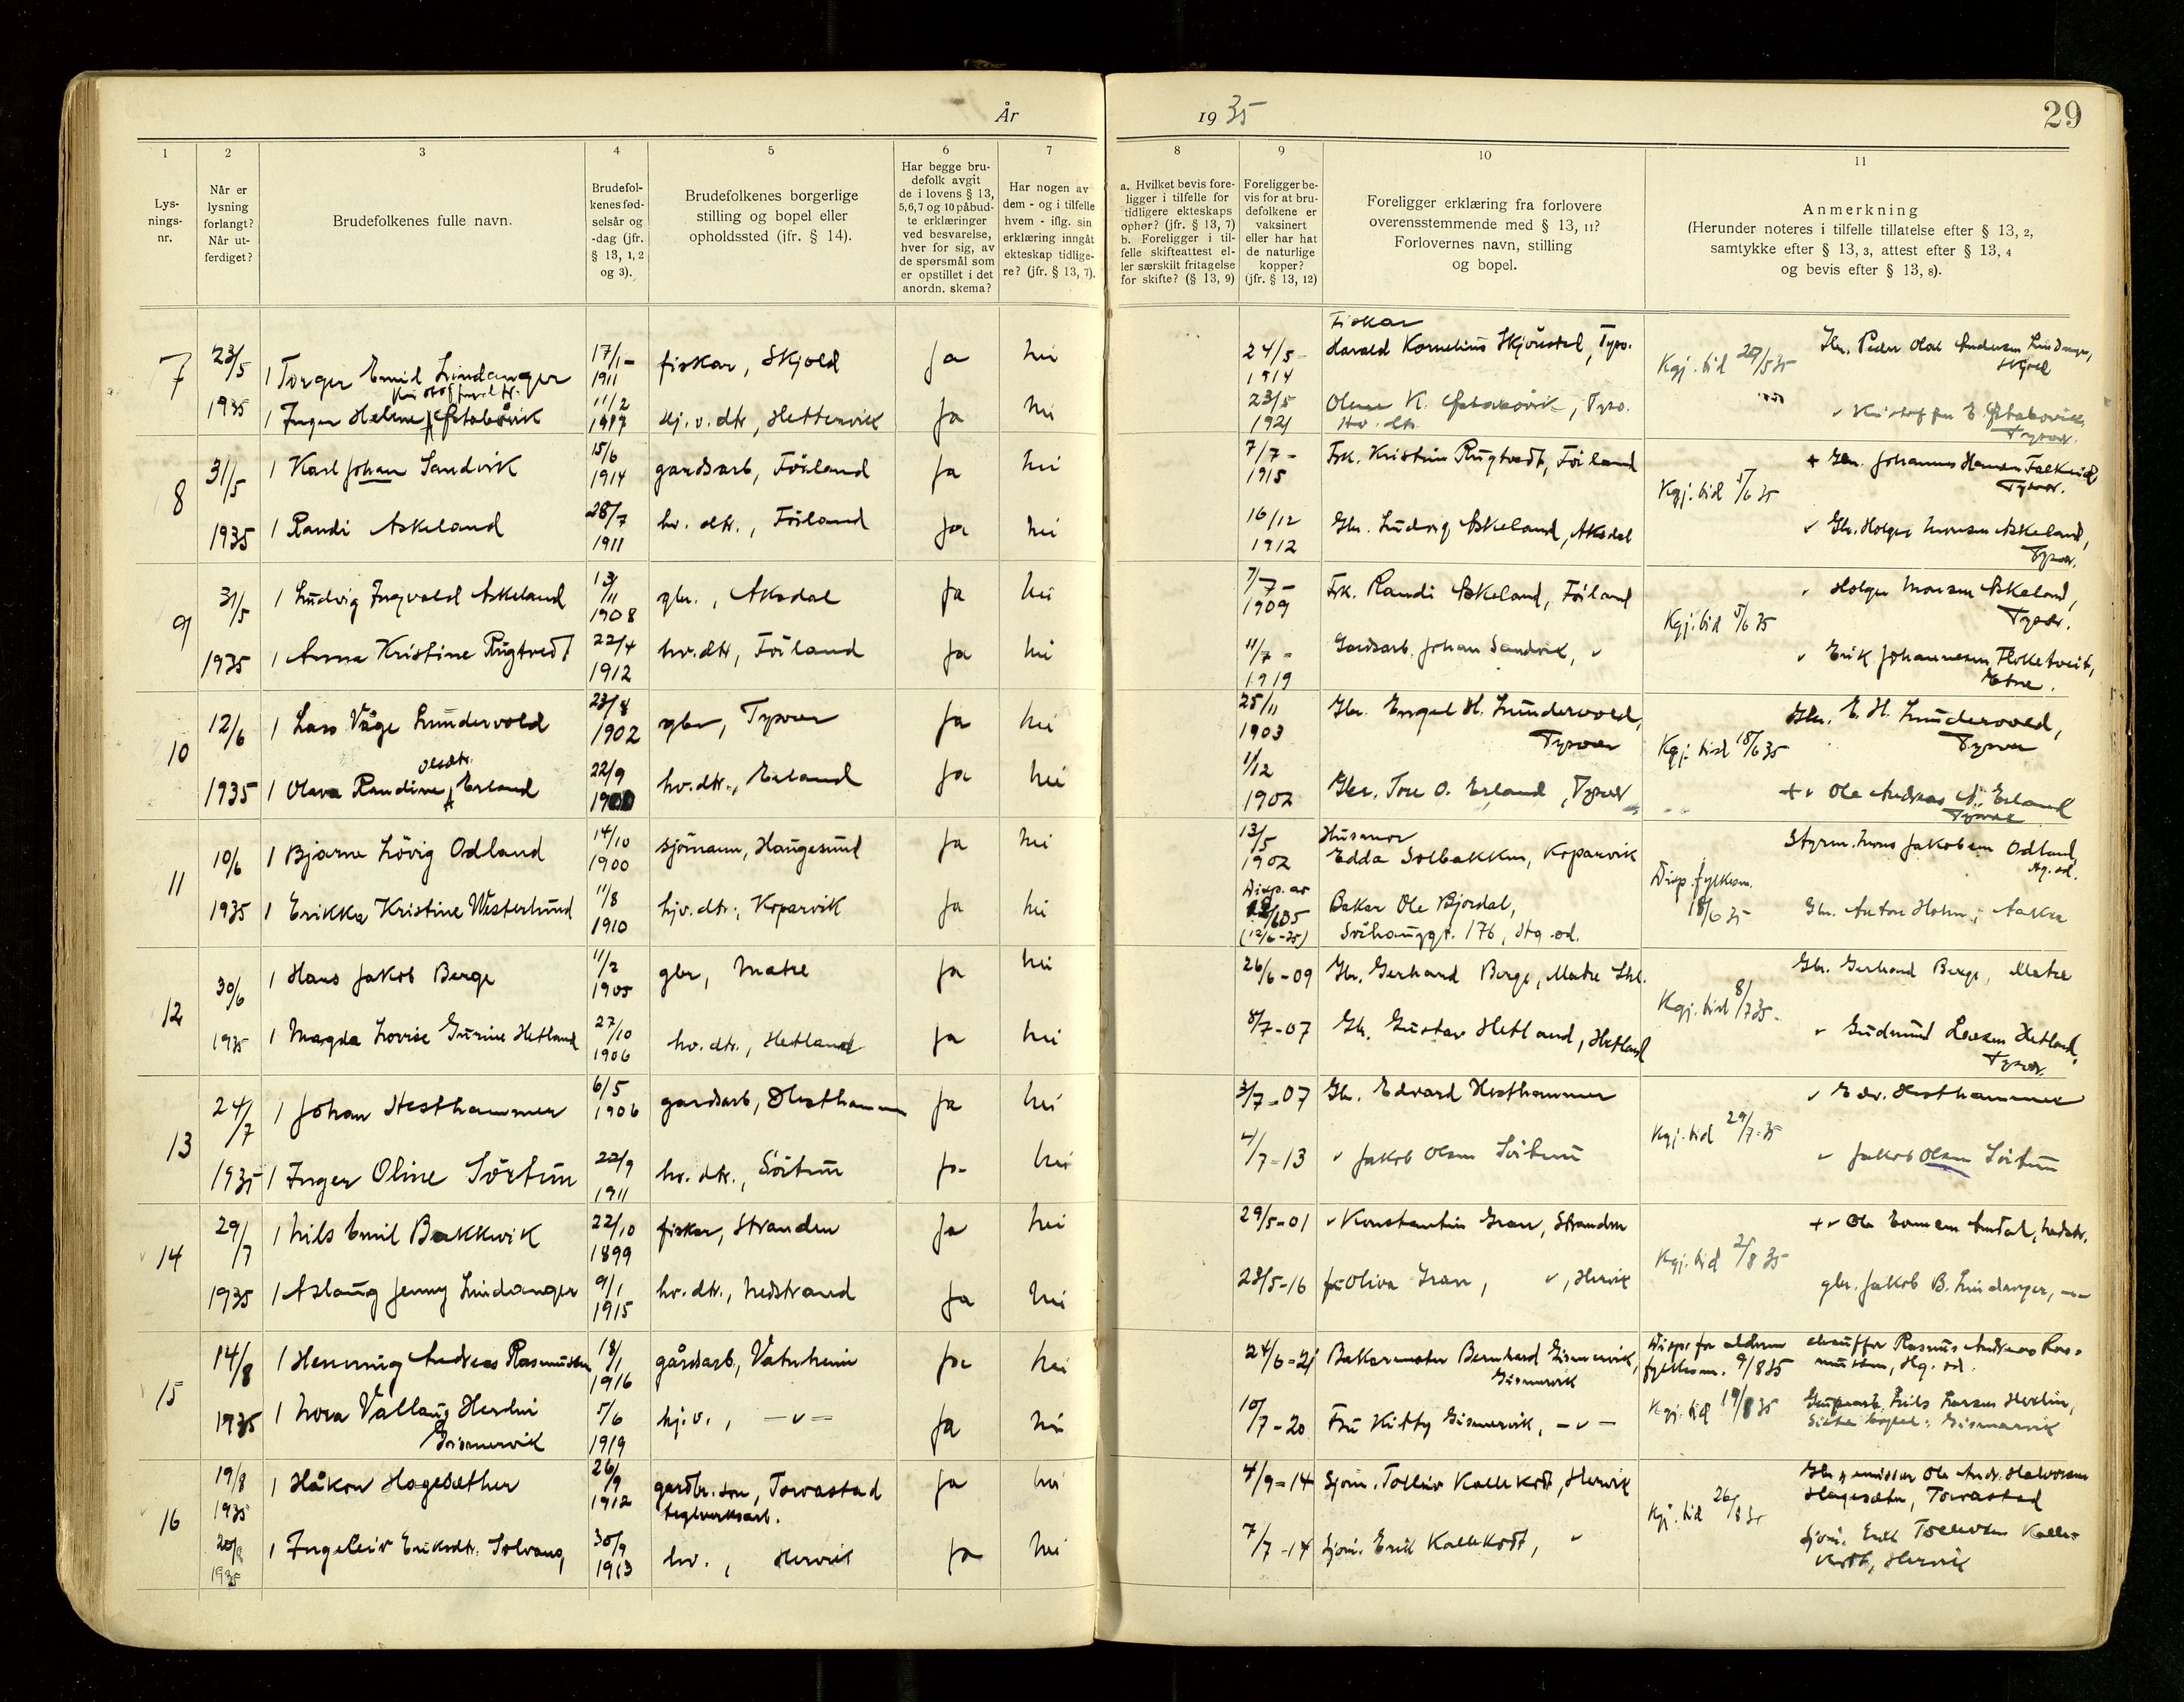 År 1935
29
1
2
3
4
5
6
7
8
9
10
11
Lys-
nings-
nr.
Når er
lysning
forlangt?
Når ut-
ferdiget?
Brudefolkenes fulle navn.
Brudefol-
kenes fød-
selsår og
-dag (jfr.
§ 13, 1, 2
og 3).
Brudefolkenes borgerlige
stilling og bopel eller
opholdssted (jfr. § 14).
Har begge bru-
defolk avgit
de i lovens § 13,
5,6,7 og 10 påbud-
te erklæringer
ved besvarelse,
hver for sig, av
de spørsmål som
er opstillet i det
anordn. skema?
Har nogen av
dem - og i tilfelle
hvem - iflg. sin
erklæring inngåt
ekteskap tidlige-
re? (jfr. § 13, 7).
a. Hvilket bevis fore-
ligger i tilfelle for
tidligere ekteskaps
ophør? (jfr. § 13, 7)
b. Foreligger i til-
felle skifteattest el-
ler særskilt fritagelse
for skifte? (§ 13, 9)
Foreligger be-
vis for at bru-
defolkene er
vaksinert
eller har hat
de naturlige
kopper?
(jfr. § 13, 12)
Foreligger erklæring fra forlovere
overensstemmende med § 13, 11?
Forlovernes navn, stilling
og bopel.
Anmerkning
(Herunder noteres i tilfelle tillatelse efter § 13, 2,
samtykke efter § 13, 3, attest efter § 13, 4
og bevis efter § 13, 8).
7
23/5 1935
1 Torger Emil Lindanger
17/1- 1911
fiskar, Skjold
Ja
nei
24/5- 1914
Fiskar
Harald Kornelius
Kgj. tid
1 Inger Helene
11/2
Ja
nei
23/5 1921
8
31/5 1935
1 Karl Johan Sandvik
15/6 1914
gardsarb, Förland
Ja
nei
7/7- 1915
Frk. Kristine Rugtvedt, Förland
Kgj. tid 5/6 35
Gbr. Johannes
Tysvær.
1 Randi Askeland
28/7 1911
hv. dtr., Förland
Ja
nei
16/12 1912
Gbr. Ludvig Askeland, Aksdal
Gbr. Holger Monsen Askeland,
Tysvær.
9
31/5 1935
1 Ludvig Ingvald Askeland
13/11 1908
gbr., Aksdal
Ja
nei
7/7- 1909
Frk. Randi Askeland, Förland
Kgj. tid 5/6 35
Holger Monsen Askeland,
Tysvær.
1 Anna Kristine Rugtvedt
22/4 1912
hv.dtr, Förland
Ja
nei
11/7- 1919
Gardsarb. Johan Sandvik,
Erik Johannesen
Etne.
10
12/6 1935
1 Lars Våge Lundervold
23/8 1902
gbr, Tysvær
Ja
nei
25/11 1903
Gbr. Engel H. Lundervold,
Tysvær
Kgj. tid 18/6 35
Gbr. E. H. Lundervold,
Tysvær
1 Olava Randine Olsdtr. Erland
22/9
hv.dtr., Erland
Ja
nei
1/12 1902
Gbr. Tore O. Erland, Tysvær
Ole Andreas Erland
Tysvær
11
10/6 1935
1 Bjarne Lövig Odland
14/10 1900
sjömann, Haugesund
Ja
nei
13/5 1902
Husmor
Edda Solbakken, Kopervik
Disp. fylkesm.
18/6 35
Styrm. Mons Jakobsen Odland,
Hg. sd.
1 Erikka Kristine Westerlund
11/8 1910
hjv.dtr., Kopervik
Ja
nei
Disp. av
(12/6-35)
Baker Ole Bjordal,
176, Hg. sd.
Gbr. Anton Holm, Aakra
12
30/6 1935
1 Hans Jakob Berge
11/2 1905
gbr, Matre
Ja
nei
26/6-09
Gbr. Gerhard Berge, Matre
Kgj. tid 8/7 35-
Gbr. Gerhard Berge, Matre
1 Magda Lovise Gurine Hetland
27/10 1906
hv. dtr., Hetland
Ja
nei
8/7-07
Gbr. Gustav Hetland, Hetland
Gudmund Larsen Hetland,
Tysvær
13
24/7 1935
1 Johan Hesthammer
6/5 1906
gardsarb, Hesthammer
Ja
nei
3/7-07
Gbr. Edvard Hesthammer
Kgj. tid 29/7-35
Edv. Hesthammer
1 Inger Oline Sörtun
22/9 1911
hv. dtr., Sörtun
Ja
nei
4/7-13
Jakob Olsen Sörtun
Jakob Olsen Sörtun
14
29/7 1935
1 Nils Emil Bakkevik
22/10 1899
fiskar, Stranden
Ja
nei
29/5-01
Konstantin Gran, Stranden
Kgj. tid 2/8 35
Ole
1 Aslaug Jenny Lindanger
9/1 1915
hv. dtr., Nedstrand
Ja
nei
23/5-16
Oliva Gran, Hervik
gbr. Jakob B. Lindanger, -"-
15
14/8 1935
1 Henning Andreas Rasmussen
18/1 1916
gårdsarb., Vatnheim
Ja
nei
24/6-21
Bakermester Bernhard Gismervik,
Gismervik
Disp. for alderen
fylkesm. 9/8 35
chauffør Rasmus Andreas Ras-
mussen, Hg. sd.
1 Nora Vallaug Herdis
Gismervik
5/6 1919
hj.v., -"-
Ja
nei
10/7-20
Fru Kitty Gismervik, -"-
Kgj. tid 19/8 35
Nils Larsen
Gismervik
16
19/8 1935
1 Håkon Hagesæther
26/9 1912
gardbr. son, Torvastad
teglverksarb.
Ja
nei
4/9-14
Sjøm. Tollleiv Kallekodt, Hervik
Kgj. tid 26/8 35
Gbr. Ole Andr. Halvorsen
Hagesæter, Torvastad
20/8 1935
1 Ingeleiv Eriksdtr. Solvang
30/9 1913
hv., Hervik
Ja
nei
7/7-14
Sjøm. Erik Kallekodt, "
Sjøm. Erik Tollevsen Kalle-
kodt, Hervik